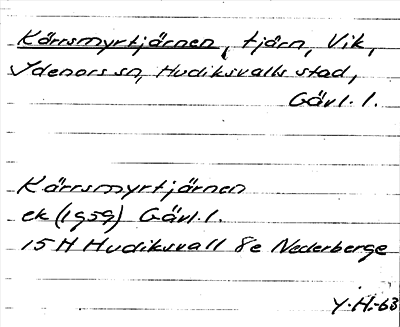 Kärrsmyrtjärnen, tjärn, Vik,
Idenors sn, Hudiksvalls stad,
Gävl. l.
Kärrsmyrtjärnen
ek (1959) Gävl. l.
15 H Hudiksvall 8e Nederberge
Y.H.-63